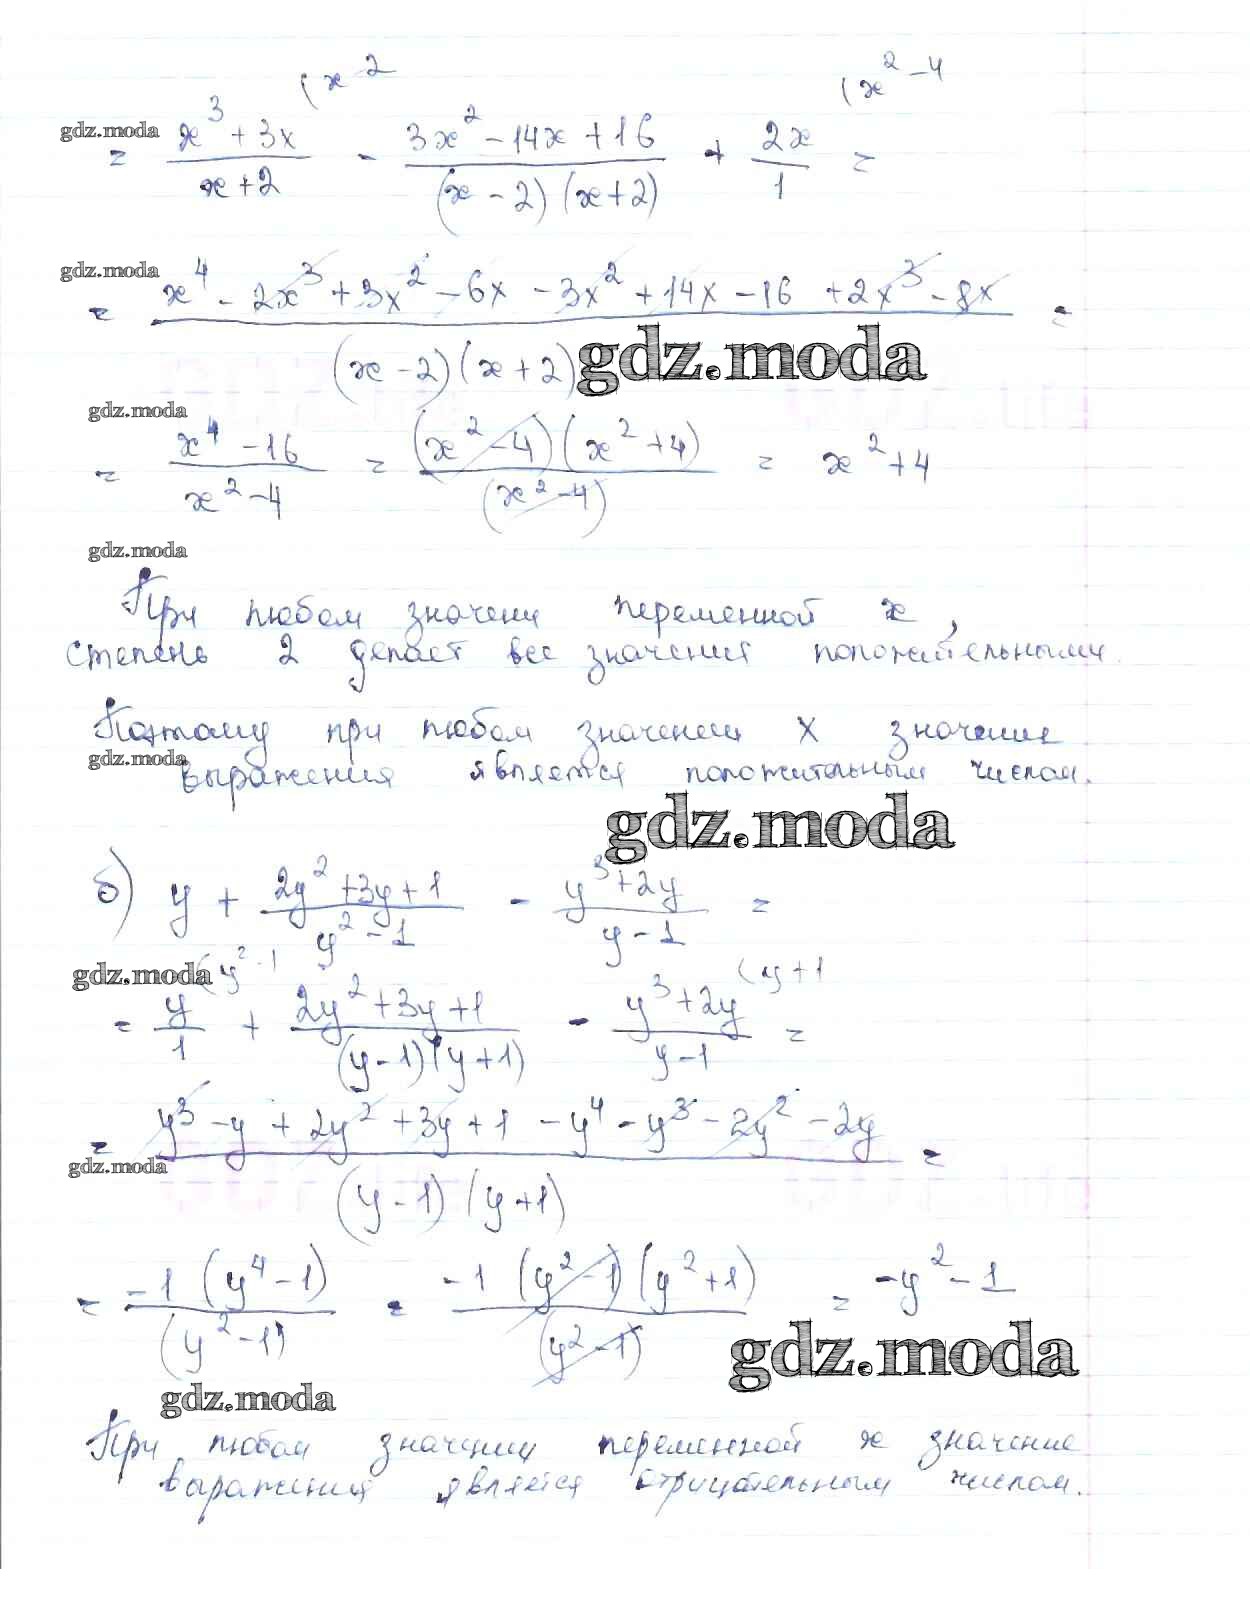 (x-2 (x²-4
gdz.moda
= (x³+3x)/(x+2) - (3x²-14x+16)/((x-2)(x+2)) + 2x/1 =
gdz.moda
= (x⁴-2x³+3x²-6x-3x²+14x-16+2x³-8x)/((x-2)(x+2)) =
gdz.moda
gdz.moda
= (x⁴-16)/(x²-4) = ((x²-4)(x²+4))/(x²-4) = x²+4
gdz.moda
При любом значени переменной x,
степень 2 делает все значения положительными.
Поэтому при любом значении x значение
gdz.moda
выражения является положительным числом.
gdz.moda
б) y + (2y²+3y+1)/(y²-1) - (y³+2y)/(y-1) =
gdz.moda (y²-1 (y+1
= y/1 + (2y²+3y+1)/((y-1)(y+1)) - (y³+2y)/(y-1) =
= (y³-y+2y²+3y+1-y⁴-y³-2y²-2y)/((y-1)(y+1)) =
gdz.moda
= (-1(y⁴-1))/(y²-1) = (-1(y²-1)(y²+1))/(y²-1) = -y²-1
gdz.moda
gdz.moda
При любом значении переменной x значение
выражения является отрицательным числом.